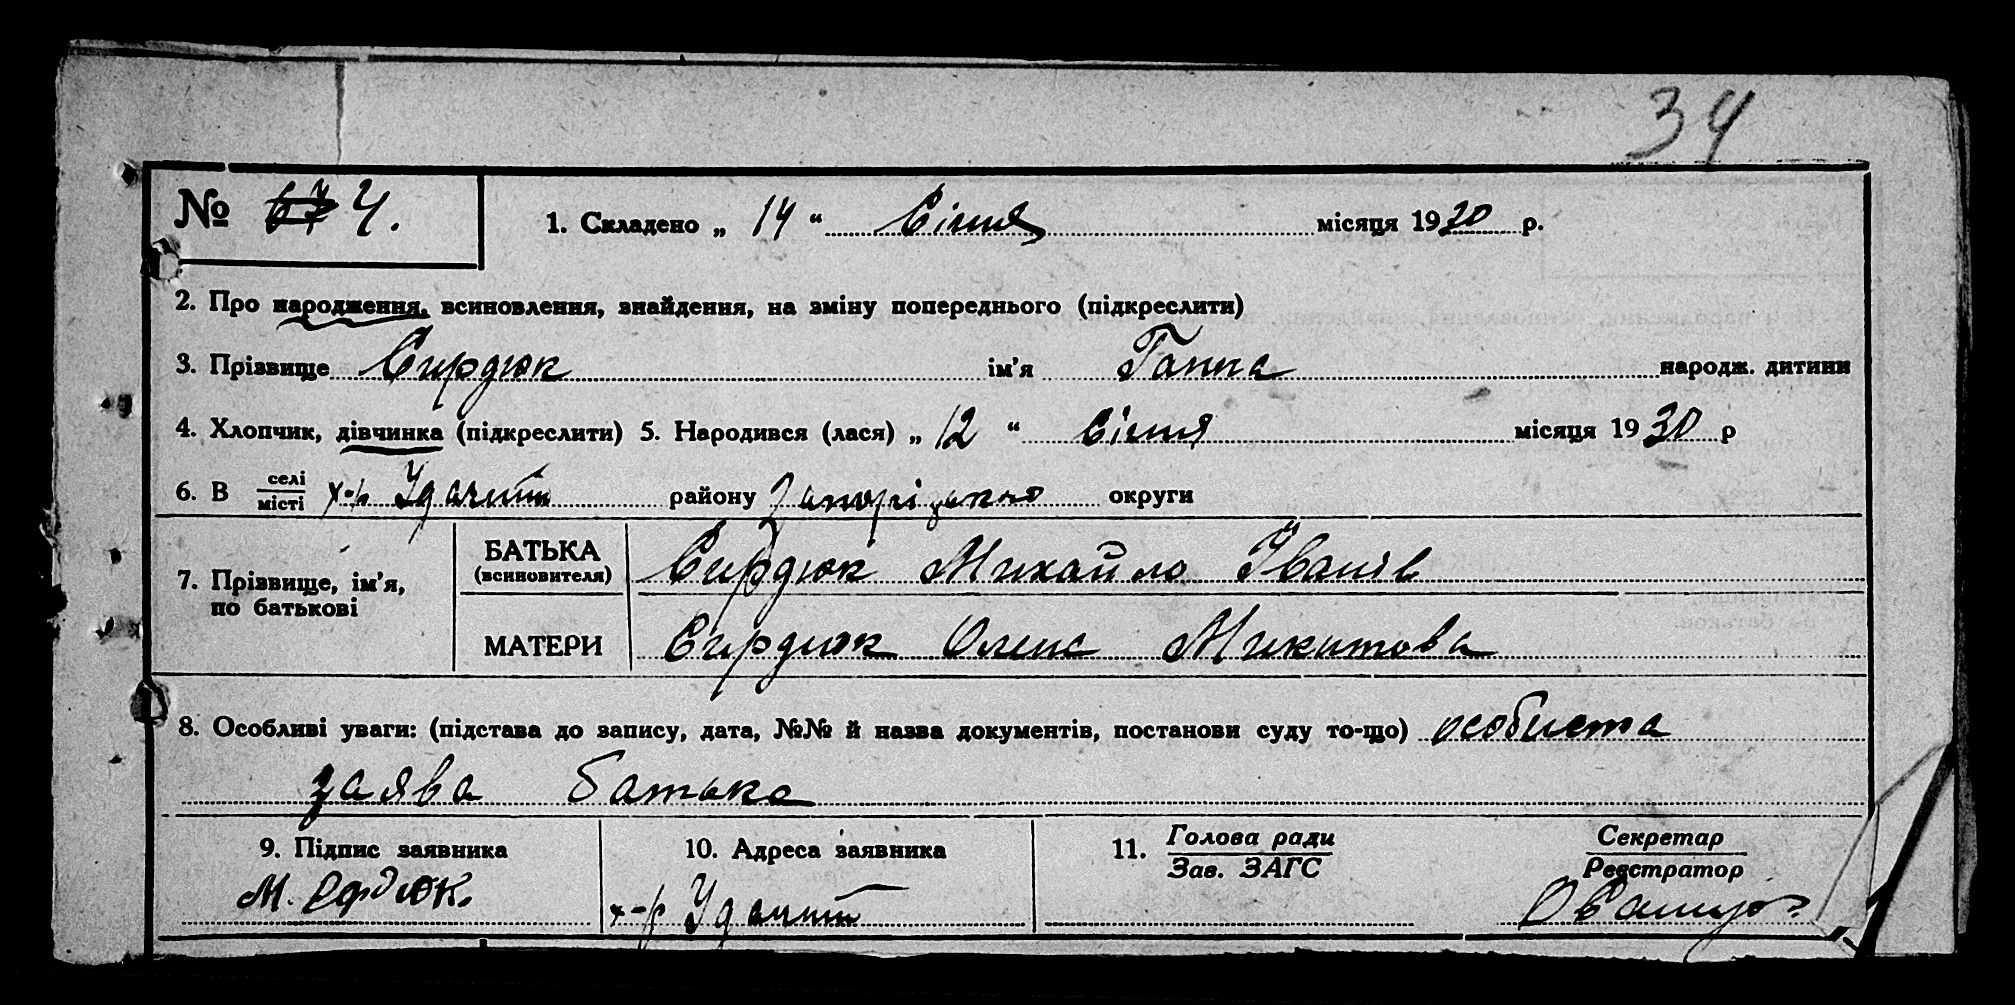 34
№ 67 4. 1. Складено „ 14 “ Січня місяця 1930 р.
2. Про народження, всиновлення, знайдення, на зміну попереднього (підкреслити)
3. Прізвище Сирдюк ім’я Ганна народж. дитини
4. Хлопчик, дівчинка (підкреслити) 5. Народився (лася) „ 12 “ Січня місяця 1930 р
6. В селі/місті х-р Удачний району Запорізького округи
7. Прізвище, ім’я, по батькові
БАТЬКА (всиновителя) Сирдюк Михайло Іванів
МАТЕРИ Сирдюк Олена Микитова
8. Особливі уваги: (підстава до запису, дата, №№ й назва документів, постанови суду то-що) особиста
заява батька
9. Підпис заявника 10. Адреса заявника 11. Голова ради Секретар
Зав. ЗАГС Реєстратор
М. Сердюк. х-р Удачний